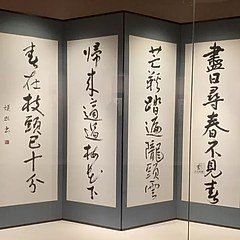 盡日尋春不見春
芒鞋踏遍隴頭雲
歸来適過梅花下
春在枝頭已十分